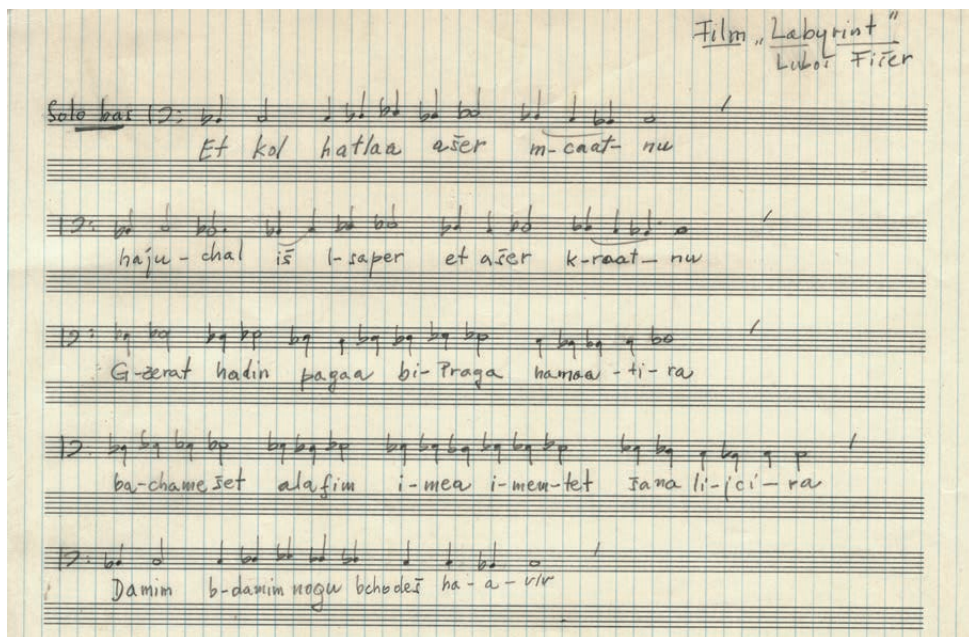 Film „Labyrint"
Luboš Fišer
Solo bas
Et kol hatlaa ašer m-caat-nu
haju-chal iš l-saper et ašer k-raat-nu
G-zerat hadin pagaa bi-Praga hamaa-ti-ra
ba-chamešet alafim i-mea i-men-tet šana li-jci-ra
Damim b-damim nogu bchodeš ha-a-viv